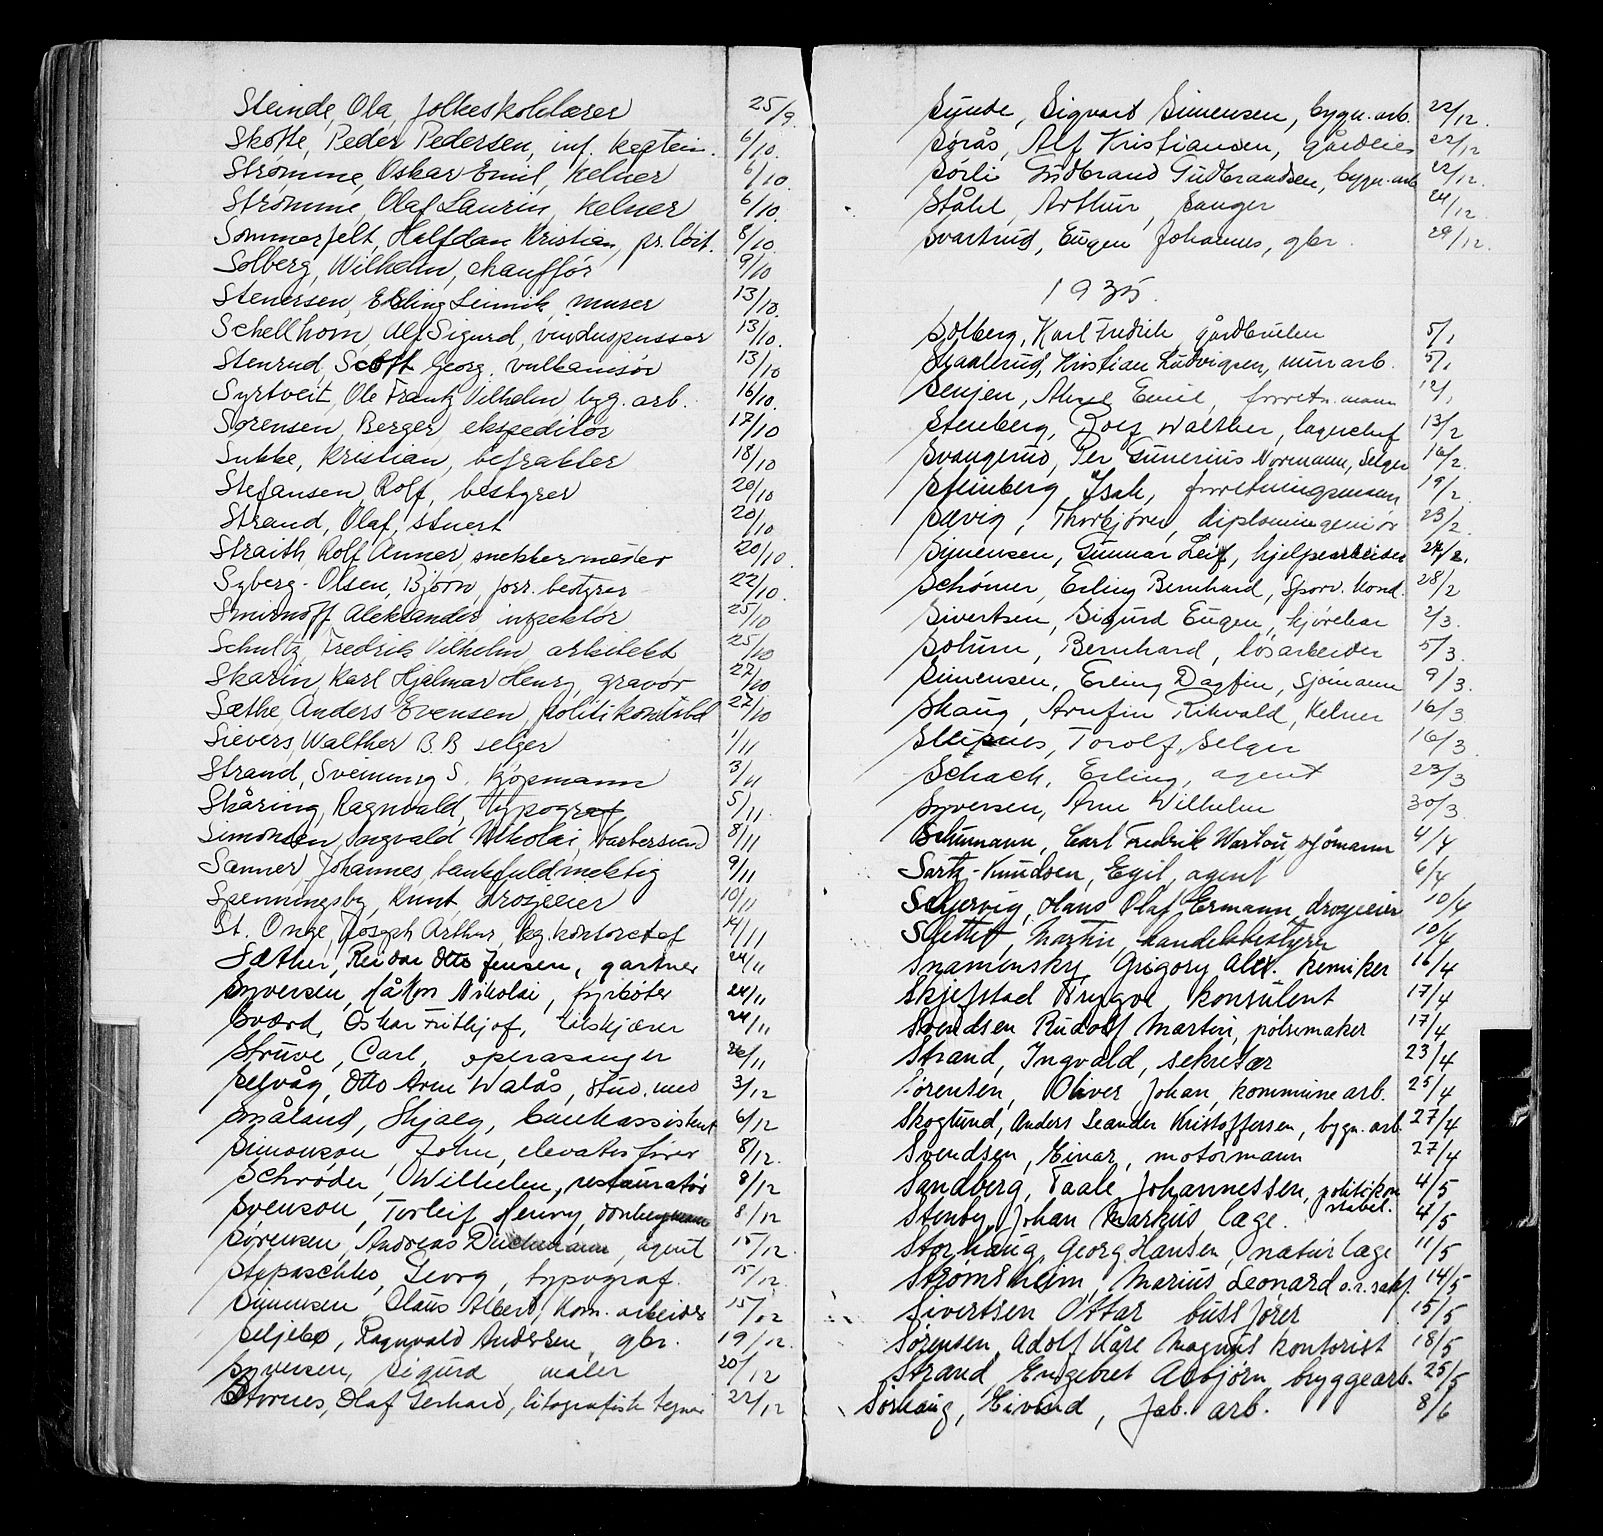 Steinde, Ola, folkeskolelærer 25/9.
Skofte, Peder Pedersen, inf. kaptein. 6/10.
Strømme, Oskar Emil, kelner 6/10.
Strømme, Olaf Laurin, kelner 6/10.
Sommerfelt, Halfdan Kristian, pr. løit. 8/10.
Solberg, Wilhelm, chauffør 9/10
Stenersen, Erling murer 13/10.
Schellhorn, Alf Sigurd, vinduspusser 13/10.
Stenrud, Scott Georg, vulkanisør 13/10
Syrtveit, Ole Frantz Vilhelm byg. arb. 16/10.
Sørensen, Berger, ekspeditør 17/10
Sukke, Kristian, befrakter 18/10
Stefansen, Rolf, bestyrer 20/10
Strand, Olaf, stuert 20/10
Straith, Rolf Annar, snekkermester 20/10.
Syberg-Olsen, Bjørn, forr. bestyrer 22/10.
Smirnoff Aleksander inspektør 25/10
Schultz, Fredrik Vilhelm arkitekt 25/10
Skarin, Karl Hjalmar Henry, gravør 27/10
Sæthe, Anders Evensen, politikonstabel 27/10
Sievers, Walther B. B. selger 1/11
Strand, Sveinung S. kjøpmann 3/11
Skåring, Ragnvald, typograf 5/11.
Simonsen, Ingvald Nikolai, barbersvend 8/11
Sanner, Johannes, bankfuldmektig 9/11
Spenningsby, Knut, drosjeeier 10/11
St. Onge, Joseph Arthur, kontorchef 14/11
Sæther, Reidar Otto Jensen, gartner 24/11
Syversen, Håkon Nikolai, fyrbøter 24/11
Sværd, Oskar Frithjof, tilskjærer 24/11
Struve, Carl, operasanger 26/11
Selvåg, Otto Arne Walås, stud. med 3/12
Småland, Hjalg, bankassistent 6/12
Simonson John, elevatorfører 8/12.
Schrøder, Wilhelm, restauratør 8/12
Svenson, Torleif Henry, 8/12
Sørensen, Andreas agent 15/12.
Stepaschko, Georg, typograf. 15/12.
Simensen Claus Albert, kom. arbeider 15/12
Seljebø, Ragnvald Andersen, gbr. 19/12.
Syversen, Sigurd, maler 20/12
Stornes, Olaf Gerhard, litografisk tegner 22/12
Sunde, Sigvard Simensen, bygn. arb. 22/12.
Sørås, Alf Kristiansen, gårdeier 22/12
Sørli Gudbrand Gudbrandsen, bygn. arb 22/12.
Ståhl, Arthur, sanger 24/12.
Svartrud, Eugen Johannes, gbr. 29/12.
1935.
Solberg, Karl Fredrik gårdbruker 5/1
Skaalerud, Kristian Ludvigsen, murarb. 5/1
Senjen, Aksel Emil, forretn. mann 12/1
Stenberg, Roly Walther, lagerchef 13/2
Svangerud, Per Gunerius Normann, Selger 16/2.
Steinberg, Isak, forretningsmann 19/2
Sævig, Thorbjørn, diplomingeniør 23/2
Simensen, Gunnar Leif, hjelpearbeider 24/2.
Schømer, Erling Bernhard, Sporv. kond. 28/2
Sivertsen, Sigurd Eugen, kjørekar 2/3.
Solum, Bernhard, løsarbeider 5/3.
Simensen, Erling Dagfin, Sjømann 9/3.
Skaug, Arnfin Rikvald, Kelner 16/3
Sleipnes, Torolf, Selger 16/3
Schack, Erling, agent 23/3
Syversen, Arne Wilhelm 30/3
Schumann, Carl Fredrik sjømann 4/4
Sartz-Knudsen, Egil, agent 6/4
Schjervig, Hans Olaf Ermann, drosjeeier 10/4
Slettet, Martin, handelsbestyrer 10/4
Snamensky, Grigory Alex. kemiker 16/4
Skjefstad Trygve, konsulent 17/4
Svendsen Rudolf Martin, pølsemaker 17/4
Strand, Ingvald, sekretær 23/4
Sørensen, Oliver Johan, kommunearb. 25/4
Skoglund, Anders Leander Kristoffersen, bygn. arb. 27/4
Svendsen, Einar, motormann 27/4
Sandberg, Paale Johannessen, politikon 4/5
stabel.
Stenby, Johan Markus læge. 4/5
Storhaug, Georg Hansen, naturlæge 11/5
Strømsheim, Marius Leonard o.r.sakf. 14/5
Sivertsen Ottar bussfører 15/5
Sørensen, Adolf Kåre Magnus kontorist 18/5
Strand, Engebret Asbjørn, bryggearb. 25/5
Sørhaug, Eivind, fab. arb. 8/6